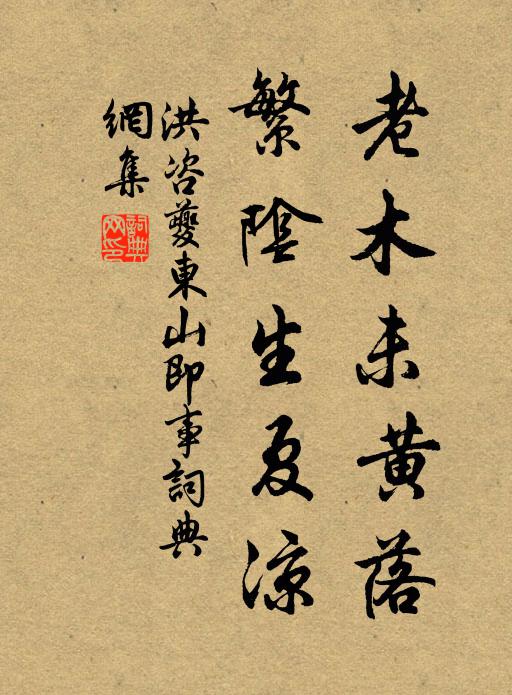 老木未黄落
繁陰生夏凉
洪咨夔東山即事詞典
網集
詞典
网印